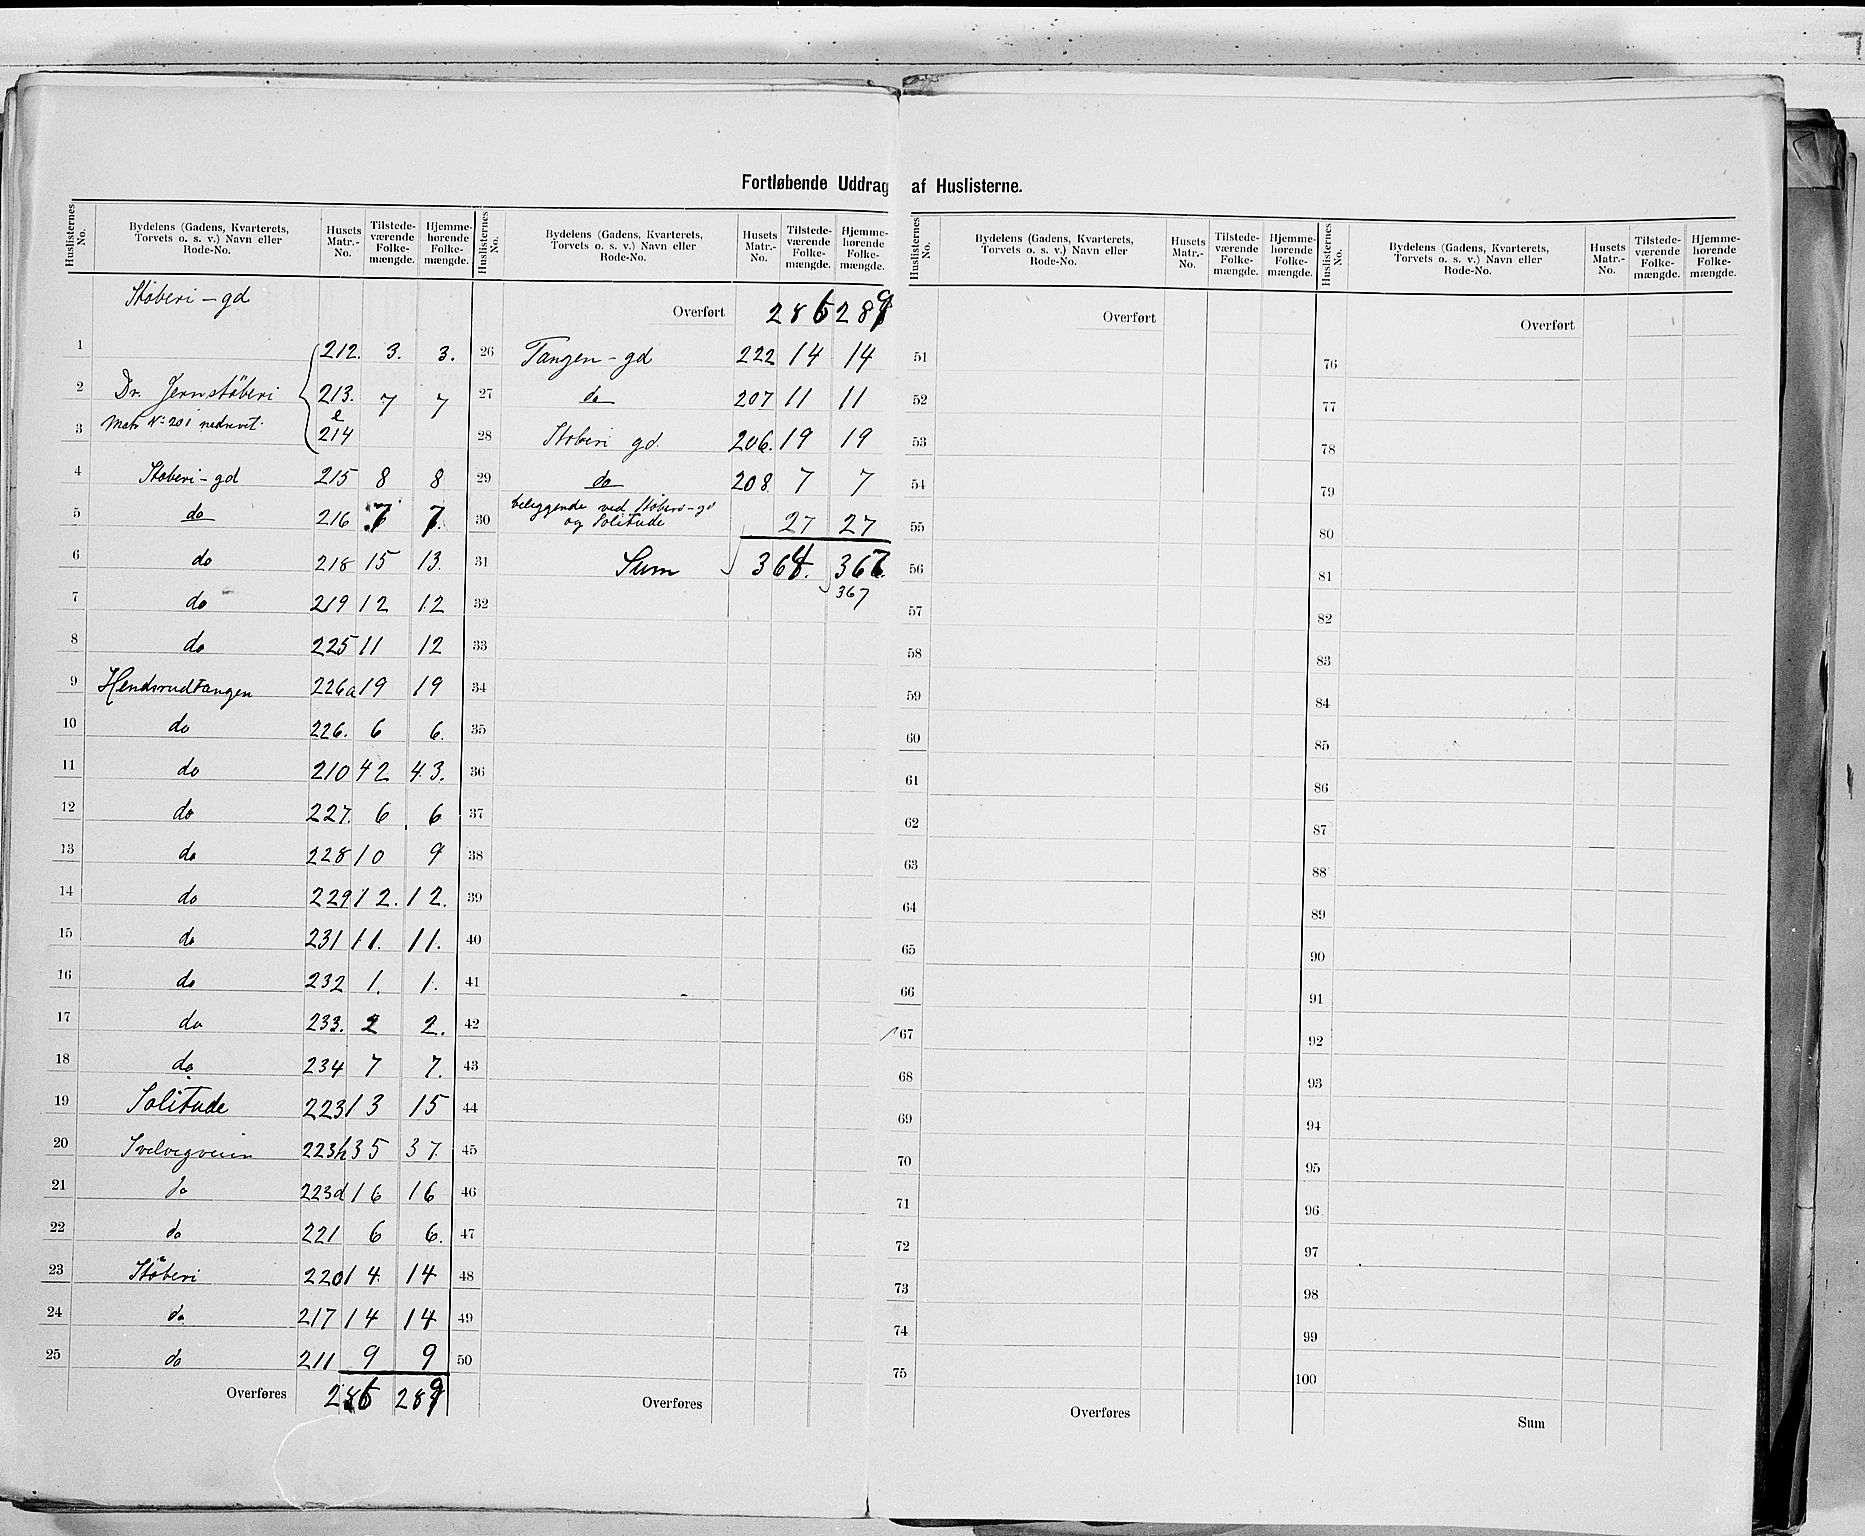 Fortløbende Uddrag af Huslisterne.
Huslisternes No. | Bydelens (Gadens, Kvarterets, Torvets o. s. v.) Navn eller Rode-No. | Husets Matr.-No. | Tilstedeværende Folkemængde. | Hjemmehørende Folkemængde.
Støberi-gd
1 212. 3. 3.
2 Dr. Jernstøberi 213. 7 7
3 Matr No 201 nedrevet. & 214
4 Støberi-gd 215 8 8
5 do 216 7 7.
6 do 218 15 13.
7 do 219 12 12
8 do 225 11 12
9 Hendsrudtangen 226a 19 19
10 do 226. 6 6.
11 do 210 42 43.
12 do 227. 6 6
13 do 228 10 9
14 do 229 12. 12.
15 do 231 11. 11.
16 do 232 1. 1.
17 do 233. 2 2.
18 do 234 7 7.
19 Solitude 223 13 15
20 Svelvigveien 223h 35 37.
21 do 223d 16 16
22 do 221 6 6.
23 Støberi 220 14 14
24 do 217 14 14
25 do 211 9 9
Overføres 286 289
Huslisternes No. | Bydelens (Gadens, Kvarterets, Torvets o. s. v.) Navn eller Rode-No. | Husets Matr.-No. | Tilstedeværende Folkemængde. | Hjemmehørende Folkemængde.
Overført 286 289
26 Tangen-gd 222 14 14
27 do 207 11 11
28 Støberi gd 206. 19 19
29 do 208. 7 7
30 beliggende ved Støberi-gd
og Solitude 27 27
31 Sum 364. 367.
32 367
33
34
35
36
37
38
39
40
41
42
43
44
45
46
47
48
49
50
Overføres
Huslisternes No. | Bydelens (Gadens, Kvarterets, Torvets o. s. v.) Navn eller Rode-No. | Husets Matr.-No. | Tilstedeværende Folkemængde. | Hjemmehørende Folkemængde.
Overført
51
52
53
54
55
56
57
58
59
60
61
62
63
64
65
66
67
68
69
70
71
72
73
74
75
Overføres
Huslisternes No. | Bydelens (Gadens, Kvarterets, Torvets o. s. v.) Navn eller Rode-No. | Husets Matr.-No. | Tilstedeværende Folkemængde. | Hjemmehørende Folkemængde.
Overført
76
77
78
79
80
81
82
83
84
85
86
87
88
89
90
91
92
93
94
95
96
97
98
99
100
Sum